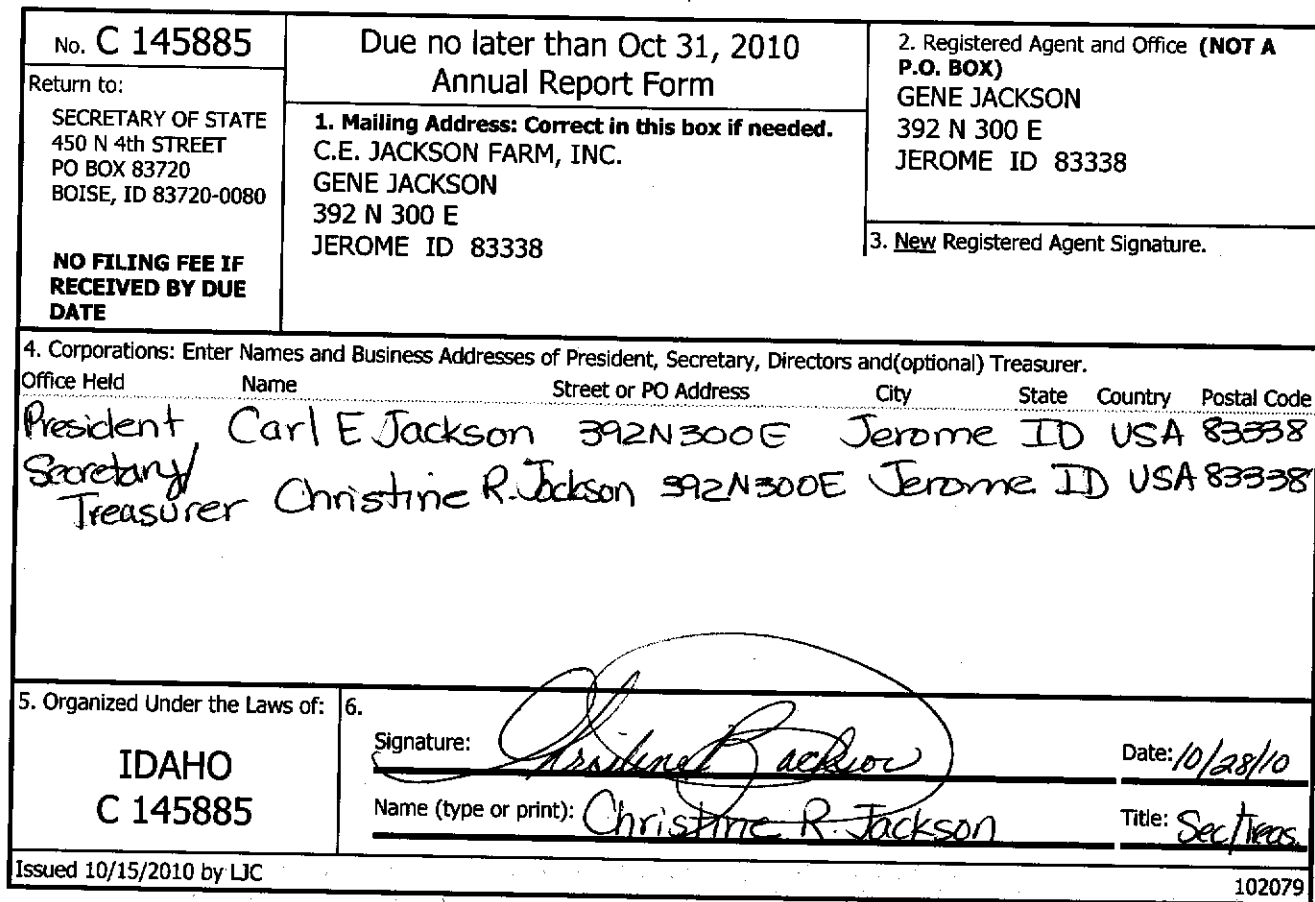 No. C 145885
Return to:
SECRETARY OF STATE
450 N 4th STREET
PO BOX 83720
BOISE, ID 83720-0080
NO FILING FEE IF
RECEIVED BY DUE
DATE
Due no later than Oct 31, 2010
Annual Report Form
1. Mailing Address: Correct in this box if needed.
C.E. JACKSON FARM, INC.
GENE JACKSON
392 N 300 E
JEROME ID 83338
2. Registered Agent and Office (NOT A
P.O. BOX)
GENE JACKSON
392 N 300 E
JEROME ID 83338
3. New Registered Agent Signature.
4. Corporations: Enter Names and Business Addresses of President, Secretary, Directors and(optional) Treasurer.
Office Held Name Street or PO Address City State Country Postal Code
President, Carl E Jackson 392N300E Jerome ID USA 83338
Secretary/
Treasurer Christine R. Jackson 392N300E Jerome ID USA 83338
5. Organized Under the Laws of:
IDAHO
C 145885
6.
Signature: Christine R Jackson Date: 10/28/10
Name (type or print): Christine R. Jackson Title: Sec/Treas.
Issued 10/15/2010 by LJC
102079